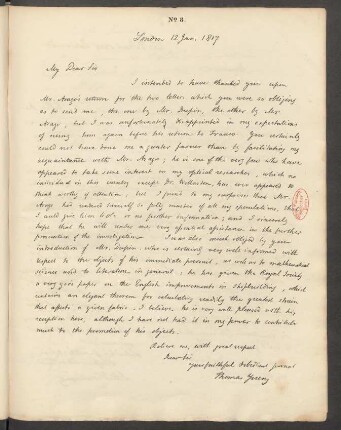 Nº 8.
London 12 Jan. 1817
My Dear Sir
I intended to have thanked you upon
Mr. Arago's return for the two letters which you were so obliging
as to send me, the one by Mr. Dupin, the other by Mr.
Arago, but I was unfortunately disappointed in my expectations
of seeing him again before his return to France. You certainly
could not have done me a greater favour than by facilitating my
acquaintance with Mr. Arago; he is one of the very few who have
appeared to take some interest in my optical researches, which no
individual in this country except Dr. Wollaston, has ever appeared to
think worthy of attention. to my surprise that Mr.
Arago had made himself so fully master of all my speculations, that
I could give him little or no further information; and I sincerely
hope that he will render me very effectual assistance in the further
promotion of the investigation. I am also much obliged by your
introduction of Mr. Dupin, who is extremely well informed with
respect to the objects of his immediate pursuit, as well as to mathematical
science and to literature in general; he has given the Royal Society
a very good paper on the English improvements in shipbuilding, which
contains an elegant theorem for calculating readily the greatest strain
that affects a given fabric. I believe, he is very well pleased with his
reception here, although I have not had it in my power to contribute
much to the promotion of his objects.
Believe me, with great respect
Dear Sir
your faithful obedient servant
Thomas Young